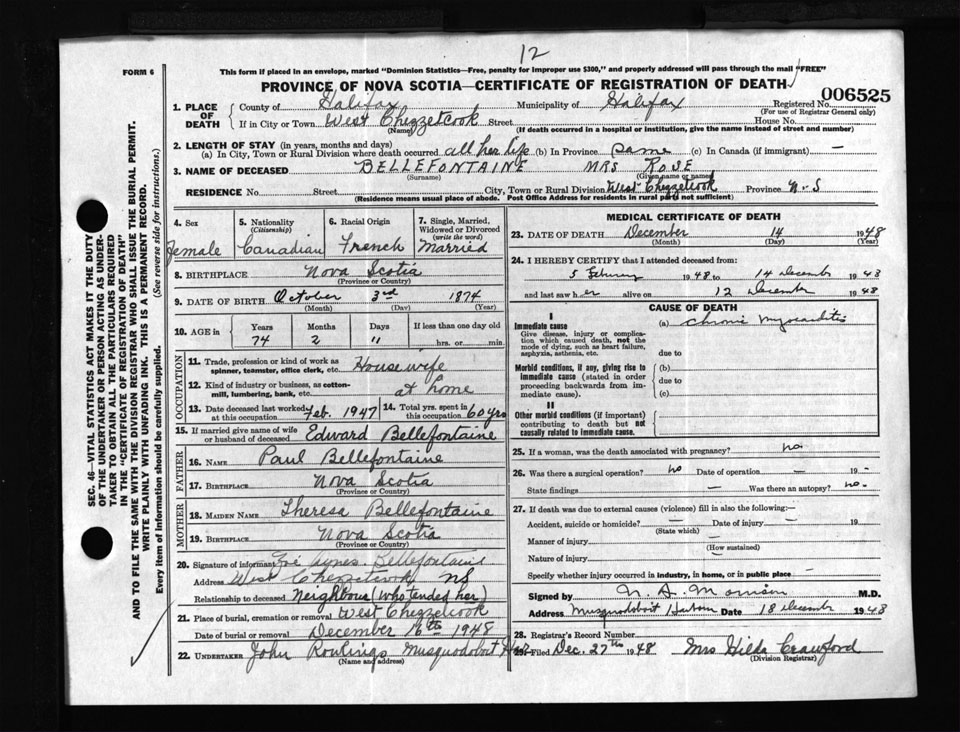 12
FORM 6
This form if placed in an envelope, marked "Dominion Statistics—Free, penalty for improper use $300," and properly addressed will pass through the mail "FREE"
PROVINCE OF NOVA SCOTIA—CERTIFICATE OF REGISTRATION OF DEATH
006525
1. PLACE OF DEATH County of Halifax Municipality of Halifax Registered No.
(For use of Registrar General only)
If in City or Town West Chezzetcook Street House No.
(Name) (If death occurred in a hospital or institution, give the name instead of street and number)
2. LENGTH OF STAY (in years, months and days)
(a) In City, Town or Rural Division where death occurred all her life (b) In Province same (c) In Canada (if immigrant) —
3. NAME OF DECEASED BELLEFONTAINE MRS ROSE
(Surname) (Given name or names)
RESIDENCE No. Street City, Town or Rural Division West Chezzetcook Province N-S
(Residence means usual place of abode. Post Office Address for residents in rural parts not sufficient)
4. Sex Female
5. Nationality (Citizenship) Canadian
6. Racial Origin French
7. Single, Married, Widowed or Divorced (write the word) Married
8. BIRTHPLACE Nova Scotia
(Province or Country)
9. DATE OF BIRTH October 3rd 1874
(Month) (Day) (Year)
10. AGE in Years Months Days If less than one day old
74 2 11 hrs. or min.
OCCUPATION
11. Trade, profession or kind of work as spinner, teamster, office clerk, etc. House wife
12. Kind of industry or business, as cotton-mill, lumbering, bank, etc. at home
13. Date deceased last worked at this occupation Feb. 1947
14. Total yrs. spent in this occupation 60 yrs
15. If married give name of wife or husband of deceased Edward Bellefontaine
FATHER
16. NAME Paul Bellefontaine
17. BIRTHPLACE Nova Scotia
(Province or Country)
MOTHER
18. MAIDEN NAME Theresa Bellefontaine
19. BIRTHPLACE Nova Scotia
(Province or Country)
20. Signature of informant Agnes Bellefontaine
Address West Chezzetcook NS
Relationship to deceased Neighbour (who tended her)
21. Place of burial, cremation or removal West Chezzetcook
Date of burial or removal December 16th 1948
22. UNDERTAKER John Rowlings Musquodoboit Har
(Name and address)
MEDICAL CERTIFICATE OF DEATH
23. DATE OF DEATH December 14 1948
(Month) (Day) (Year)
24. I HEREBY CERTIFY that I attended deceased from:
5 February 1948 to 14 December 1948
and last saw her alive on 12 December 1948
CAUSE OF DEATH
I
Immediate cause (a) chronic myocarditis
Give disease, injury or complication which caused death, not the mode of dying, such as heart failure, asphyxia, asthenia, etc.
due to
Morbid conditions, if any, giving rise to immediate cause (stated in order proceeding backwards from immediate cause).
(b)
due to
(c)
II
Other morbid conditions (if important) contributing to death but not causally related to immediate cause.
25. If a woman, was the death associated with pregnancy? no
26. Was there a surgical operation? no Date of operation — 19 -
State findings — Was there an autopsy? no.
27. If death was due to external causes (violence) fill in also the following:—
Accident, suicide or homicide? — Date of injury — 19
(State which)
Manner of injury —
(How sustained)
Nature of injury —
Specify whether injury occurred in industry, in home, or in public place —
Signed by N. A. Morrison M.D.
Address Musquodoboit Harbour Date 18 December 1948
28. Registrar's Record Number
29. Filed Dec. 27th 1948 Mrs Hilda Crawford
(Division Registrar)
SEC. 46—VITAL STATISTICS ACT MAKES IT THE DUTY
OF THE UNDERTAKER OR PERSON ACTING AS UNDER-
TAKER TO OBTAIN ALL THE PARTICULARS REQUIRED
IN THE "CERTIFICATE OF REGISTRATION OF DEATH"
AND TO FILE THE SAME WITH THE DIVISION REGISTRAR WHO SHALL ISSUE THE BURIAL PERMIT.
WRITE PLAINLY WITH UNFADING INK. THIS IS A PERMANENT RECORD.
Every item of information should be carefully supplied. (See reverse side for instructions.)